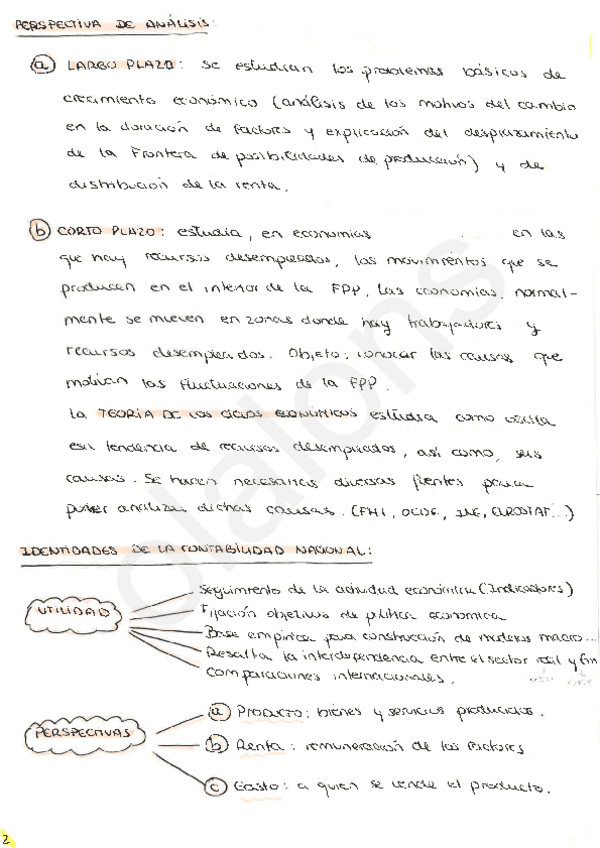 PERSPECTIVA DE ANÁLISIS:
a) LARGO PLAZO: se estudian los problemas básicos de
crecimiento económico (análisis de los motivos del cambio
en la dotación de factores y explicación del desplazamiento
de la Frontera de posibilidades de producción) y de
distribución de la renta.
b) CORTO PLAZO: estudia, en economías en las
que hay recursos desempleados, los movimientos que se
producen en el interior de la FPP. Las economías, normal-
mente se mueven en zonas donde hay trabajadores y
recursos desempleados. Objeto: conocer las causas que
motivan las fluctuaciones de la FPP.
La TEORÍA DE LOS CICLOS ECONÓMICOS estudia como oscila
esa tendencia de recursos desempleados, así como, sus
causas. Se hacen necesarias diversas fuentes para
poder analizar dichas causas. (FMI, OCDE, INE, EUROSTAT...)
IDENTIDADES DE LA CONTABILIDAD NACIONAL:
UTILIDAD
Seguimiento de la actividad económica (Indicadores)
Fijación objetivos de política económica
Base empírica para construcción de modelos macro...
Resalta la interdependencia entre el sector real y fin
Comparaciones internacionales.
PERSPECTIVAS
a) Producto: bienes y servicios producidos.
b) Renta: remuneración de los factores
c) Gasto: a quien se vende el producto.
2
olalons